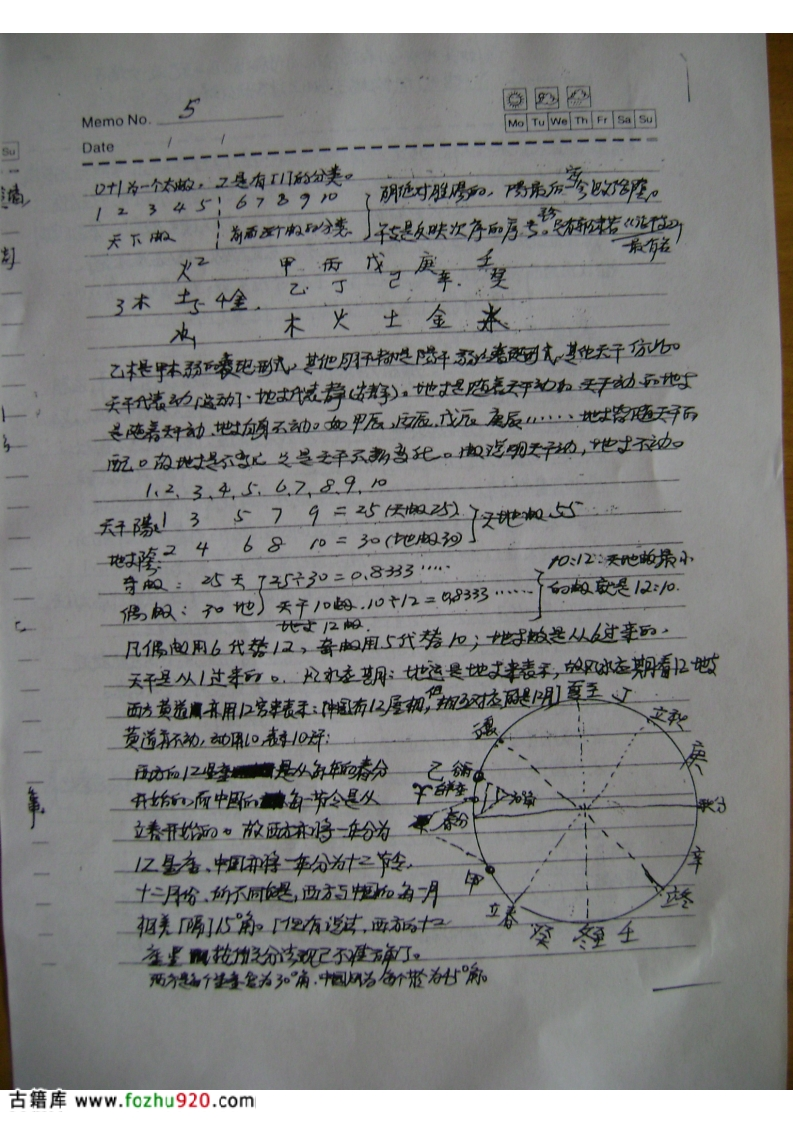 Memo No. 5
Mo Tu We Th Fr Sa Su
Date / /
Su
0+1为一个太极。2是有阴阳的分类。
1 2 3 4 5 6 7 8 9 10
天下数 前面四个数的分类
阴阳对 的，
干支是反映次序的序号。
最有名
火2 甲 丙 戊 庚 壬
乙 丁 己 辛 癸
3木 土5 4金
水1 木 火 土 金 水
乙木是甲木弱的表现形式，其他阴干都是阳干弱的表现形式，其他天干仿此。
天干代表动(运动)、地支代表静(安静)。地支是随着天干动的，天干动，而地支
是随着天干动，地支自身不动。如甲辰、丙辰、戊辰、庚辰……地支皆随天干而
配。故地支是不变化，只是天干不断变化。故说明天干动，地支不动。
1、2、3、4、5、6、7、8、9、10
天干阳：1 3 5 7 9 = 25 (天数25)
天地数55
地支阴：2 4 6 8 10 = 30 (地数30)
奇数：25天 25÷30=0.8333……
偶数：30地 天干10数 10÷12=0.8333……
地支12数
10:12：天地数最小
的数就是12:10.
凡偶数用6代替12，奇数用5代替10；地支数是从6过来的，
天干是从1过来的。风水应期：地运是地支来表示，故风水应期看12地支
西方黄道亦用12宫来表示：[中国有12属相，但相对应的是12月]
黄道亦不动，动用10表示10天干：
西方的12星座是从每年的春分
开始的，而中国的每一节令是从
立春开始的。故西方亦将一年分为
12星座、中国亦将一年分为十二节令，
十二月份、所不同的是，西方与中国的每一月
相差[隔]15°角。[但有说法，西方的十二
座星按 分法现已不准确了。
西方是每个星座宫为30°角，中国以为每个节为45°角。
夏至 丁
立秋
庚
秋分
辛
立冬
壬
冬至
癸
立春
甲
春分
乙
古籍库 www.fozhu920.com